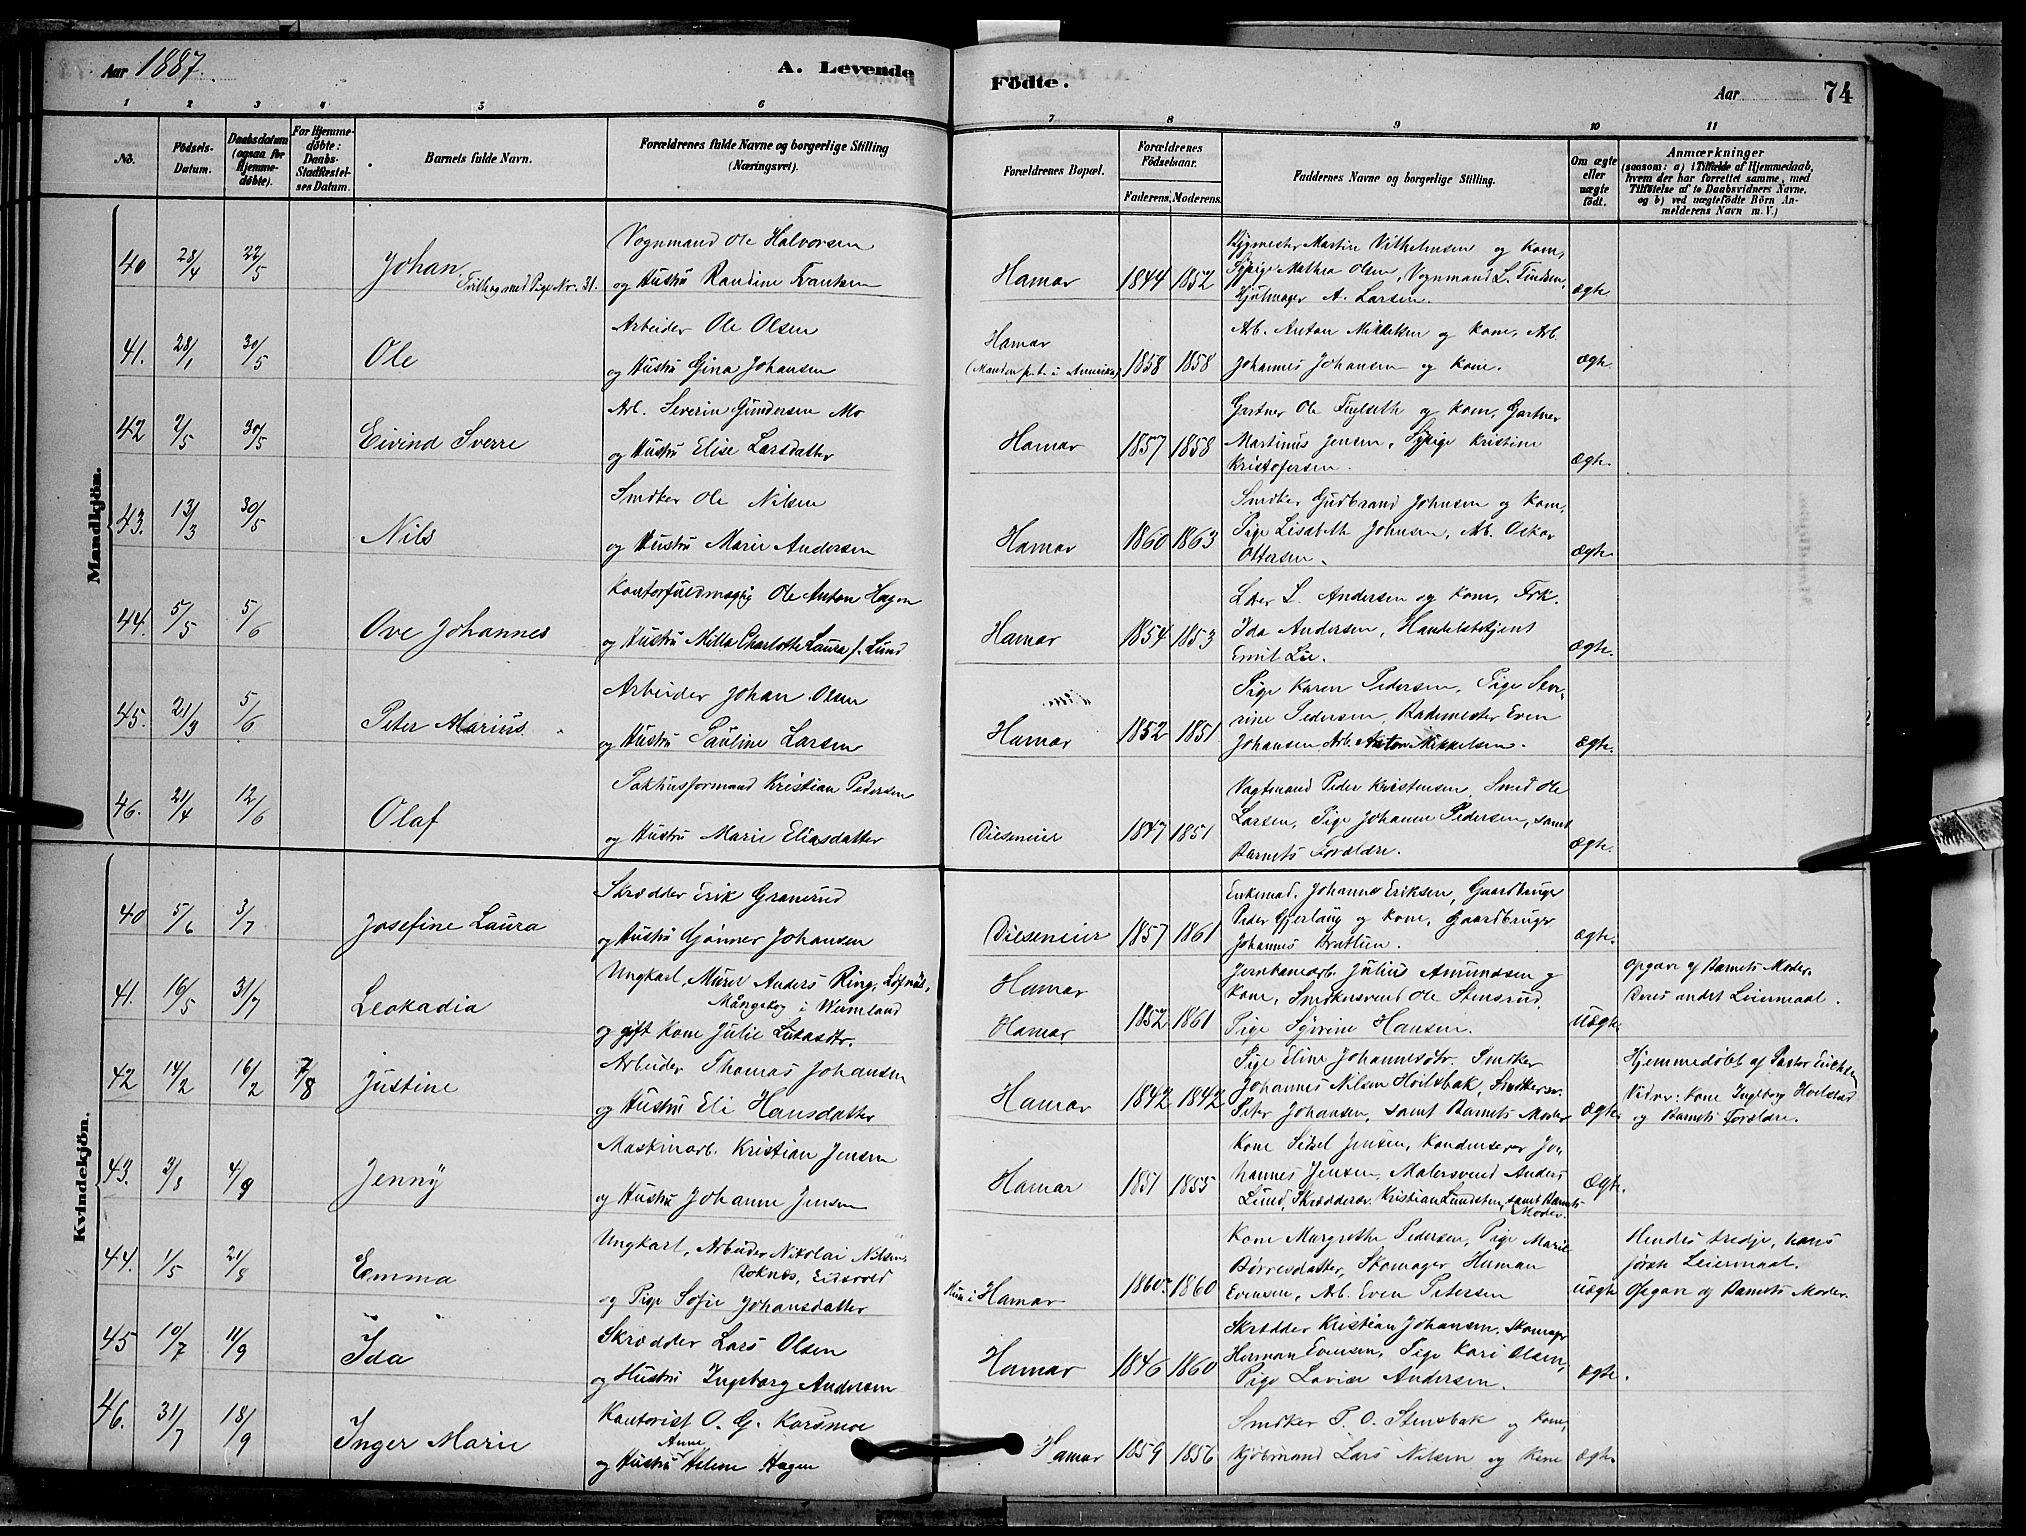 Aar 1887.
A. Levende
Födte.
Aar
74
1 2 3 4 5 6 7 8 9 10 11
No.
Födsels-
Datum.
Daabsdatum
(ogsaa for
Hjemme-
döbte).
For Hjemme-
döbte:
Daabs-
Stadfæstel-
ses Datum.
Barnets fulde Navn.
Forældrenes fulde Navne og borgerlige Stilling
(Næringsvei).
Forældrenes Bopæl.
Forældrenes
Födselsaar.
Faderens. Moderens.
Faddernes Navne og borgerlige Stilling.
Om ægte
eller
uægte
födt.
Anmærkninger
(saasom: a) i Tilfælde af Hjemmedaab,
hvem der har forrettet samme, med
Tilföielse af to Daabsvidners Navne.
og b) ved uægtefödte Börn An-
melderens Navn m. V.)
Mandkjön.
40 28/4 22/5 Johan.
Tvilling med Pige Nr. 31.
Vognmand Ole Halvorsen
og Hustru Randine Frantsen
Hamar 1844 1852
Bygmester Martin Vilhelmsen og Kone,
Sypige Mathea Olsen, Vognmand L.
Hjulmager A. Larsen.
ægte
41. 28/1 30/5 Ole
Arbeider Ole Olsen
og Hustru Gina Johansen
Hamar
(Manden p. t. i Amerika)
1858 1858
Arb. Anton Mikkelsen og Kone, Arb.
Johannes Johansen og Kone.
ægte
42 2/5 30/5 Eivind Sverre
Arb. Severin Gundersen Mo
og Hustru Elise Larsdatter
Hamar 1857 1858
Gartner Ole Fuglseth og Kone, Gartner
Martinus Jensen, Sypige Kristine
Kristofersen.
ægte.
43. 13/3 30/5 Nils
Snedker Ole Nilsen
og Hustru Marie Andersen
Hamar 1860 1863
Snedker Gudbrand Johnsen og Kone,
Pige Lisabeth Johnsen, Arb. Oskar
Ottersen.
ægte.
44. 5/5 5/6 Ove Johannes
Kontorfuldmægtig Ole Anton Hagen
og Hustru Milla Charlotte Laura f. Lund
Hamar 1854 1853
L. Andersen og Kone, Frk.
Ida Andersen, Handelsbetjent
Emil Lie.
ægte.
45. 21/3 5/6 Peter Marius
Arbeider Johan Olsen
og Hustru Pauline Larsen
Hamar 1852 1851
Pige Karen Pedersen, Pige Seve-
rine Pedersen, Bademester Even
Johansen, Arb. Anton Mikkelsen.
ægte.
46. 21/4 12/6 Olaf
Pakhusformand Kristian Pedersen
og Hustru Marie Eliasdatter
Diseneier 1847 1851
Vagtmand Peder Kristensen, Smed Ole
Larsen, Pige Johanne Pedersen, samt
Barnets Forældre.
ægte.
Kvindekjön.
40 5/6 3/7 Josefine Laura
Skrædder Erik Granerud
og Hustru Gjönner Johansen
Diseneier 1857 1861
Enkemd. Johannes Eriksen, Gaardbruger
Peder Gjerlaug og Kone, Gaardbruger
Johannes Bratlien.
ægte.
41. 16/5 3/7 Leokadia
Ungkarl, Murer Anders Ring,
Mångskog i Wermland
og gift Kone Julie
Hamar
Hamar
1852 1861
Jernbanearb. Julius Amundsen og
Kone, Snedkersvend Ole Stensrud,
Pige Syverine Hansen.
uægte.
Opgave af Barnets Moder.
Deres andet Leiermaal.
42 14/2 16/2 7/8 Justine
Arbeider Thomas Johansen
og Hustru Eli Hansdatter
Hamar 1842 1842
Pige Eline Johannesdtr. Snedker
Johannes Nilsen Hoilsbak, Snedkersv.
Peter Johansen, samt Barnets Moder
ægte.
Hjemmedöbt af Pastor
Vidner: Kone Ingeborg Hoelstad
og Barnets Forældre.
43. 3/8 4/9 Jenny
Maskinarb. Kristian Jensen
og Hustru Johanne Jensen
Hamar 1851 1855
Kone Sidsel Jensen, Kondensører Jo-
hannes Jensen, Malersvend Anders
Lund, Skræddersv. Kristian Lundsten, samt Barnets
Moder.
ægte.
44. 1/5 21/8 Emma
Ungkarl, Arbeider Nikolai Nilsen,
Eidsvold
og Pige Sofie Johansdatter
Hun i Hamar
1860 1860
Kone Margrethe Pedersen, Pige Marie
Börresdatter, Skomager Herman
Evensen, Arb. Even Petersen
uægte
Hendes tredje, hans
förste Leiermaal.
Opgave af Barnets Moder.
45 10/7 11/9 Ida
Skrædder Lars Olsen
og Hustru Ingeborg Andersen
Hamar 1846 1860
Skrædder Kristian Johansen, Skomager
Herman Evensen, Pige Kari Olsen,
Pige Lovise Andersen.
ægte.
46. 31/7 18/9 Inger Marie
Kontorist O. G. Korsmoe
og Hustru Anne Helene Hagen
Hamar 1859 1856
Snedker P. O. Stensbak og Kone,
Kjöbmand Lars Nilsen og Kone
ægte.